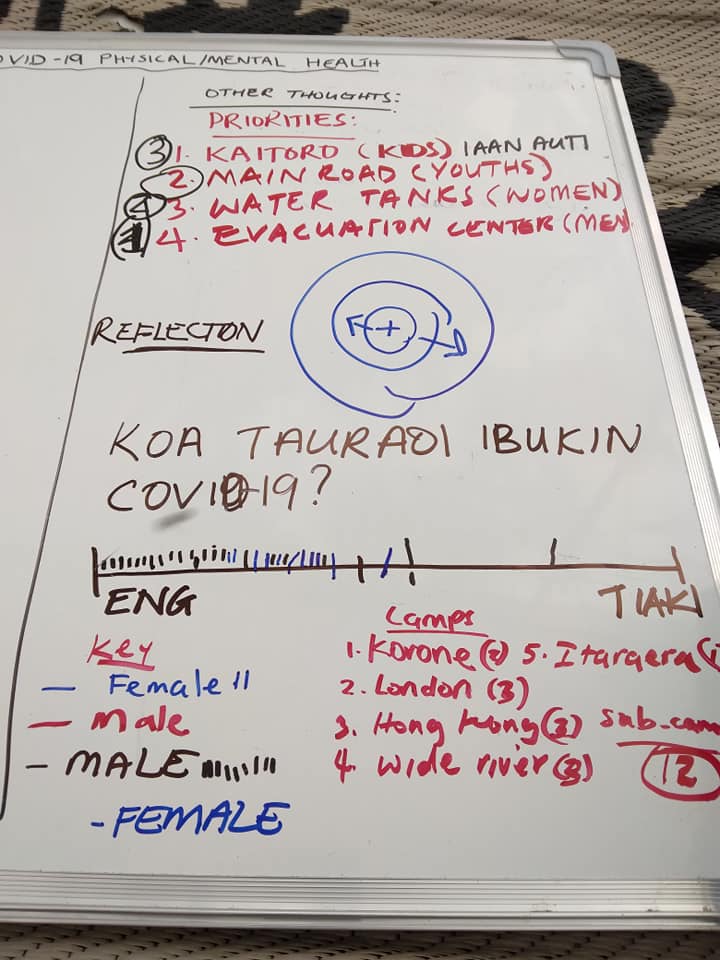 OVID-19 PHYSICAL/MENTAL HEALTH
OTHER THOUGHTS:
PRIORITIES:
3 1. KAITORO (KIDS) IAAN AUTI
2. MAIN ROAD (YOUTHS)
3. WATER TANKS (WOMEN)
1 4. EVACUATION CENTER (MEN)
REFLECTION
KOA TAURAOI IBUKIN
COVID-19?
ENG
TIAKI
Key
- Female
- Male
- MALE
- FEMALE
Camps
1. Korone (2) 5. Itaraera (1
2. London (3)
3. Hong Kong (3) sub-cam
4. Wide river (3) 12